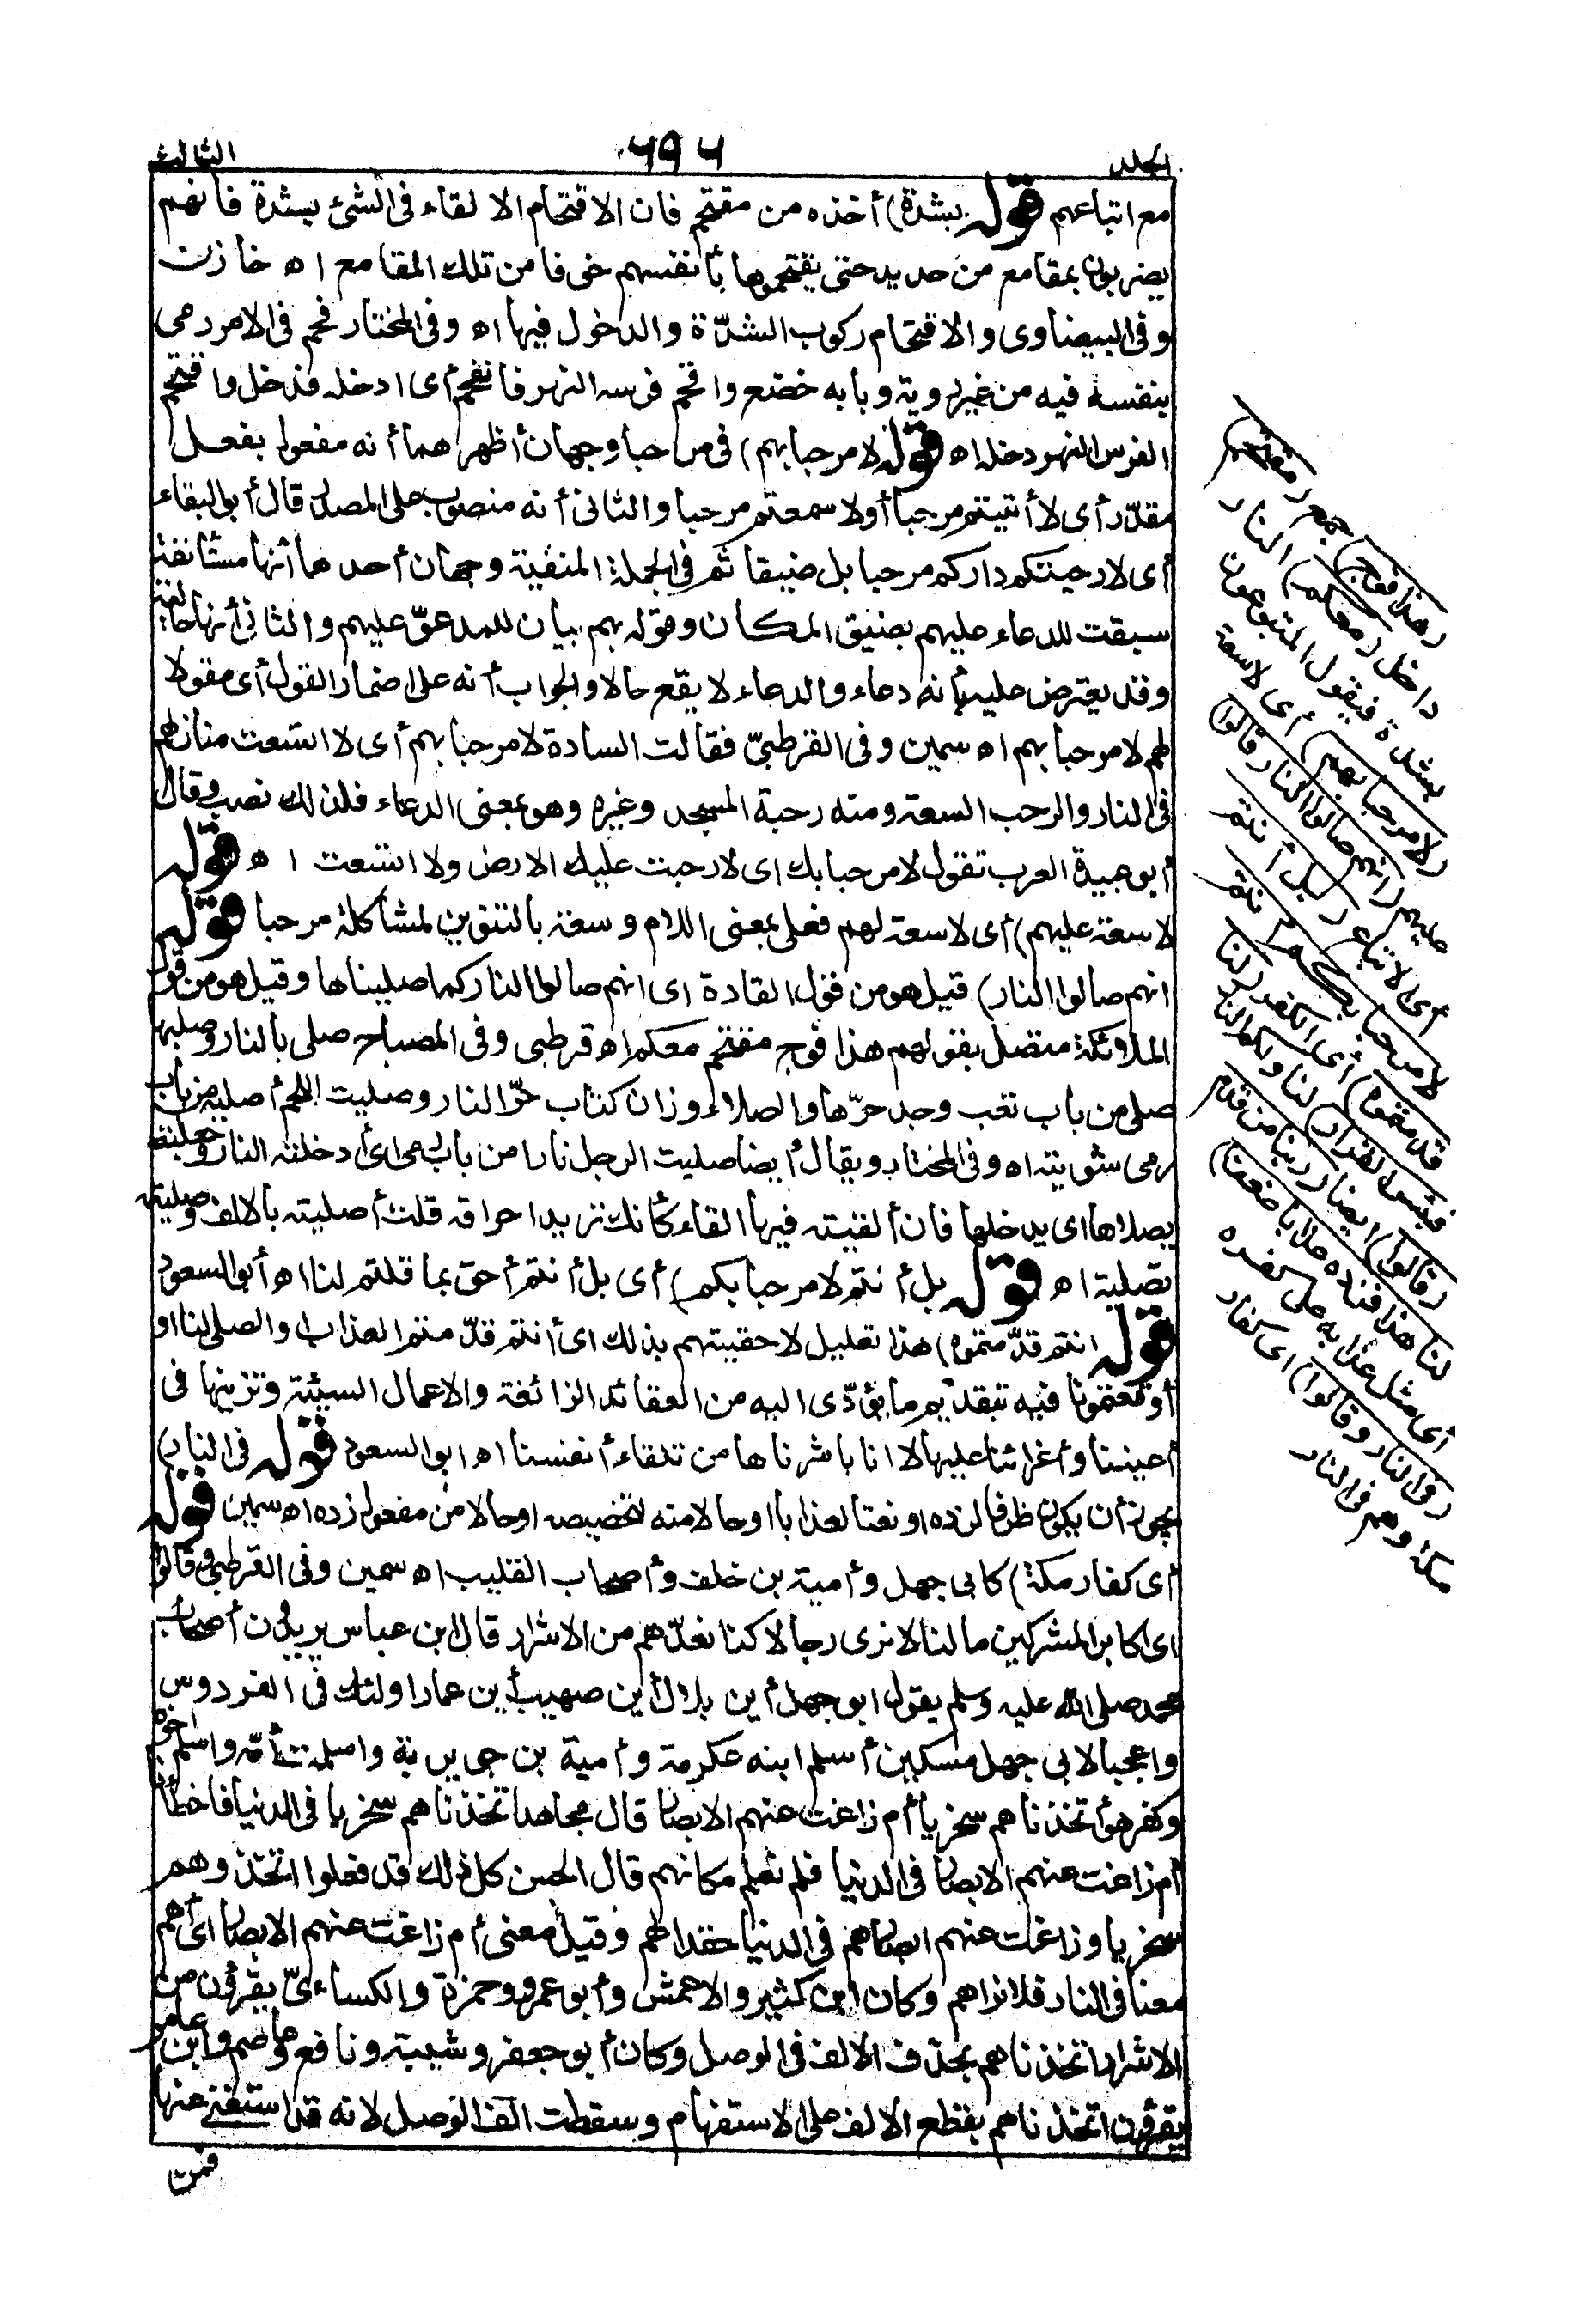 المجلد ٦٩٦ الثالث
مع اتباعهم قوله بشدة) أخذه من مقتحم فان الاقتحام الالقاء فى الشئ بشدة فانهم
يضربون بمقامع من حديد حتى يقتحموها بأنفسهم خوفا من تلك المقامع اه خازن
وفى البيضاوى والاقتحام ركوب الشدّة والدخول فيها اه وفى المختار قحم فى الامر رمى
بنفسه فيه من غير روية وبابه خضع واقحم فرسه النهر فانقحم أى ادخله فدخل واقتحم
الفرس النهر دخله اه قوله لا مرحبا بهم) فى مرحبا وجهان أظهرهما أنه مفعول بفعل
مقدّر أى لا أتيتم مرحبا أو لا سمعتم مرحبا والثانى أنه منصوب على المصدر قال أبو البقاء
أى لا رحبتكم داركم مرحبا بل ضيقا ثم فى الجملة المنفية وجهان أحدهما انها مستأنفة
سيقت للدعاء عليهم بضيق المكان وقوله بهم بيان للمدعوّ عليهم والثانى أنها حالية
وقد يعترض عليه بأنه دعاء والدعاء لا يقع حالا والجواب أنه على اضمار القول أى مقولا
لهم لا مرحبا بهم اه سمين وفى القرطبىّ فقالت السادة لا مرحبا بهم أى لا اتسعت منازلهم
فى النار والرحب السعة ومنه رحبة المسجد وغيره وهو بمعنى الدعاء فلذلك نصب وقال
أبو عبيدة العرب تقول لا مرحبا بك اى لا رحبت عليك الارض ولا اتسعت اه قوله
لا سعة عليهم) أى لا سعة لهم فعلى بمعنى اللام وسعة بالتنوين لمشاكلة مرحبا قوله
انهم صالوا النار) قيل هو من قول القادة اى انهم صالوا النار كما صليناها وقيل هو من قول
الملائكة متصل بقولهم هذا فوج مقتحم معكم اه قرطبى وفى المصباح صلى بالنار وصليها
صلى من باب تعب وجد حرّها والصلاء وزان كتاب حرّ النار وصليت اللحم أصليه من باب
رمى شويته اه وفى المختار ويقال أيضا صليت الرجل نارا من باب رمى اى أدخلته النار وجعلته
يصلاها اى يدخلها فان ألقيته فيها القاء كأنك تريد احراقه قلت أصليته بالالف وصليته
تصلية اه قوله بل أنتم لا مرحبا بكم) أى بل أنتم أحق بما قلتم لنا اه أبو السعود
قوله انتم قدّمتموه) هذا تعليل لاحقيتهم بذلك اى أنتم قدّمتم العذاب والصلى لنا او
أوقعتمونا فيه بتقديم ما يؤدّى اليه من العقائد الزائغة والاعمال السيئة وتزيينها فى
أعيننا وأغرائنا عليها لا انا باشرناها من تلقاء أنفسنا اه ابو السعود قوله فى النار)
يجوز أن يكون ظرفا لزده او نعتا لعذابا او حالا منه لتخصيصه او حالا من مفعول زده اه سمين قوله
أى كفار مكة) كابى جهل وأمية بن خلف وأصحاب القليب اه سمين وفى القرطبى وقالوا
اى اكابر المشركين ما لنا لا نرى رجالا كنا نعدّهم من الاشرار قال ابن عباس يريدون أصحاب
محمد صلى الله عليه وسلم يقول ابو جهل أين بلال أين صهيب أين عمار اولئك فى الفردوس
واعجبا لابى جهل مسكين أسلم ابنه عكرمة و أمية بن جويرية واسلمت أمّه واسلم اخوه
وكفر هو أتخذناهم سخريا أم زاغت عنهم الابصار قال مجاهد اتخذناهم سخريا فى الدنيا فاخطأنا
أم زاغت عنهم الابصار فى الدنيا فلم نعلم مكانهم قال الحسن كل ذلك قد فعلوا اتخذوهم
سخريا وزاغت عنهم ابصارهم فى الدنيا حقدا لهم وقيل معنى أم زاغت عنهم الابصار اى أهم
معنا فى النار فلا نراهم وكان ابن كثير والاعمش وأبو عمرو وحمزة والكساءىّ يقرؤن من
الاشرار اتخذناهم بحذف الالف فى الوصل وكان أبو جعفر وشيبة ونافع وعاصم وابن عامر
يقرؤن اتخذناهم بقطع الالف على الاستفهام وسقطت الف الوصل لانه قد استغنى عنها
فمن
(هذا فوج) جمع (مقتحم)
داخل (معكم) النار
بشدة فيقول المتبوعون
(لا مرحبا بهم) أى لا سعة
عليهم (انهم صالوا النار قالوا)
أى الاتباع (بل أنتم
لا مرحبا بكم أنتم
قدمتموه) أى الكفر لنا
فبئس القرار) لنا ولكم النار
(قالوا) ايضا (ربنا من قدم
لنا هذا فزده عذابا ضعفا)
أى مثل عذابه على كفره
(فى النار وقالوا) اى كفار
مكة وهم فى النار